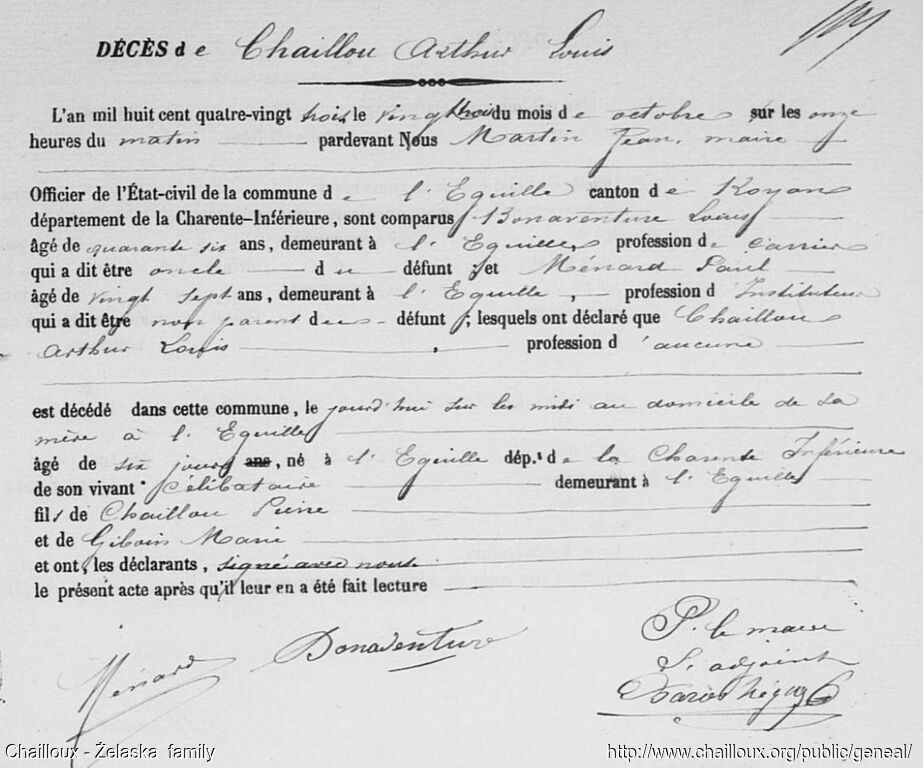 DÉCÈS de Chaillou Arthur Louis
L'an mil huit cent quatre-vingt trois le vingt trois du mois de octobre sur les onze
heures du matin pardevant Nous Martin Jean, maire
Officier de l'État-civil de la commune de l'Eguille canton de Royan
département de la Charente-Inférieure, sont comparus Bonaventure Louis
âgé de quarante six ans, demeurant à l'Eguille profession de carrier
qui a dit être oncle du défunt ; et Ménard Paul
âgé de vingt sept ans, demeurant à l'Eguille, profession d'Instituteur
qui a dit être non parent du défunt ; lesquels ont déclaré que Chaillou
Arthur Louis, profession d'aucune
est décédé dans cette commune, le jourd'hui sur les midi au domicile de sa
mère à l'Eguille
âgé de six jours ans, né à l'Eguille dép.t de la Charente Inférieure
de son vivant Célibataire demeurant à l'Eguille
fils de Chaillou Pierre
et de Giboin Marie
et ont, les déclarants, signé avec nous
le présent acte après qu'il leur en a été fait lecture
Ménard Bonaventure P. le maire
L'adjoint
Chailloux - Želaska family http://www.chailloux.org/public/geneal/